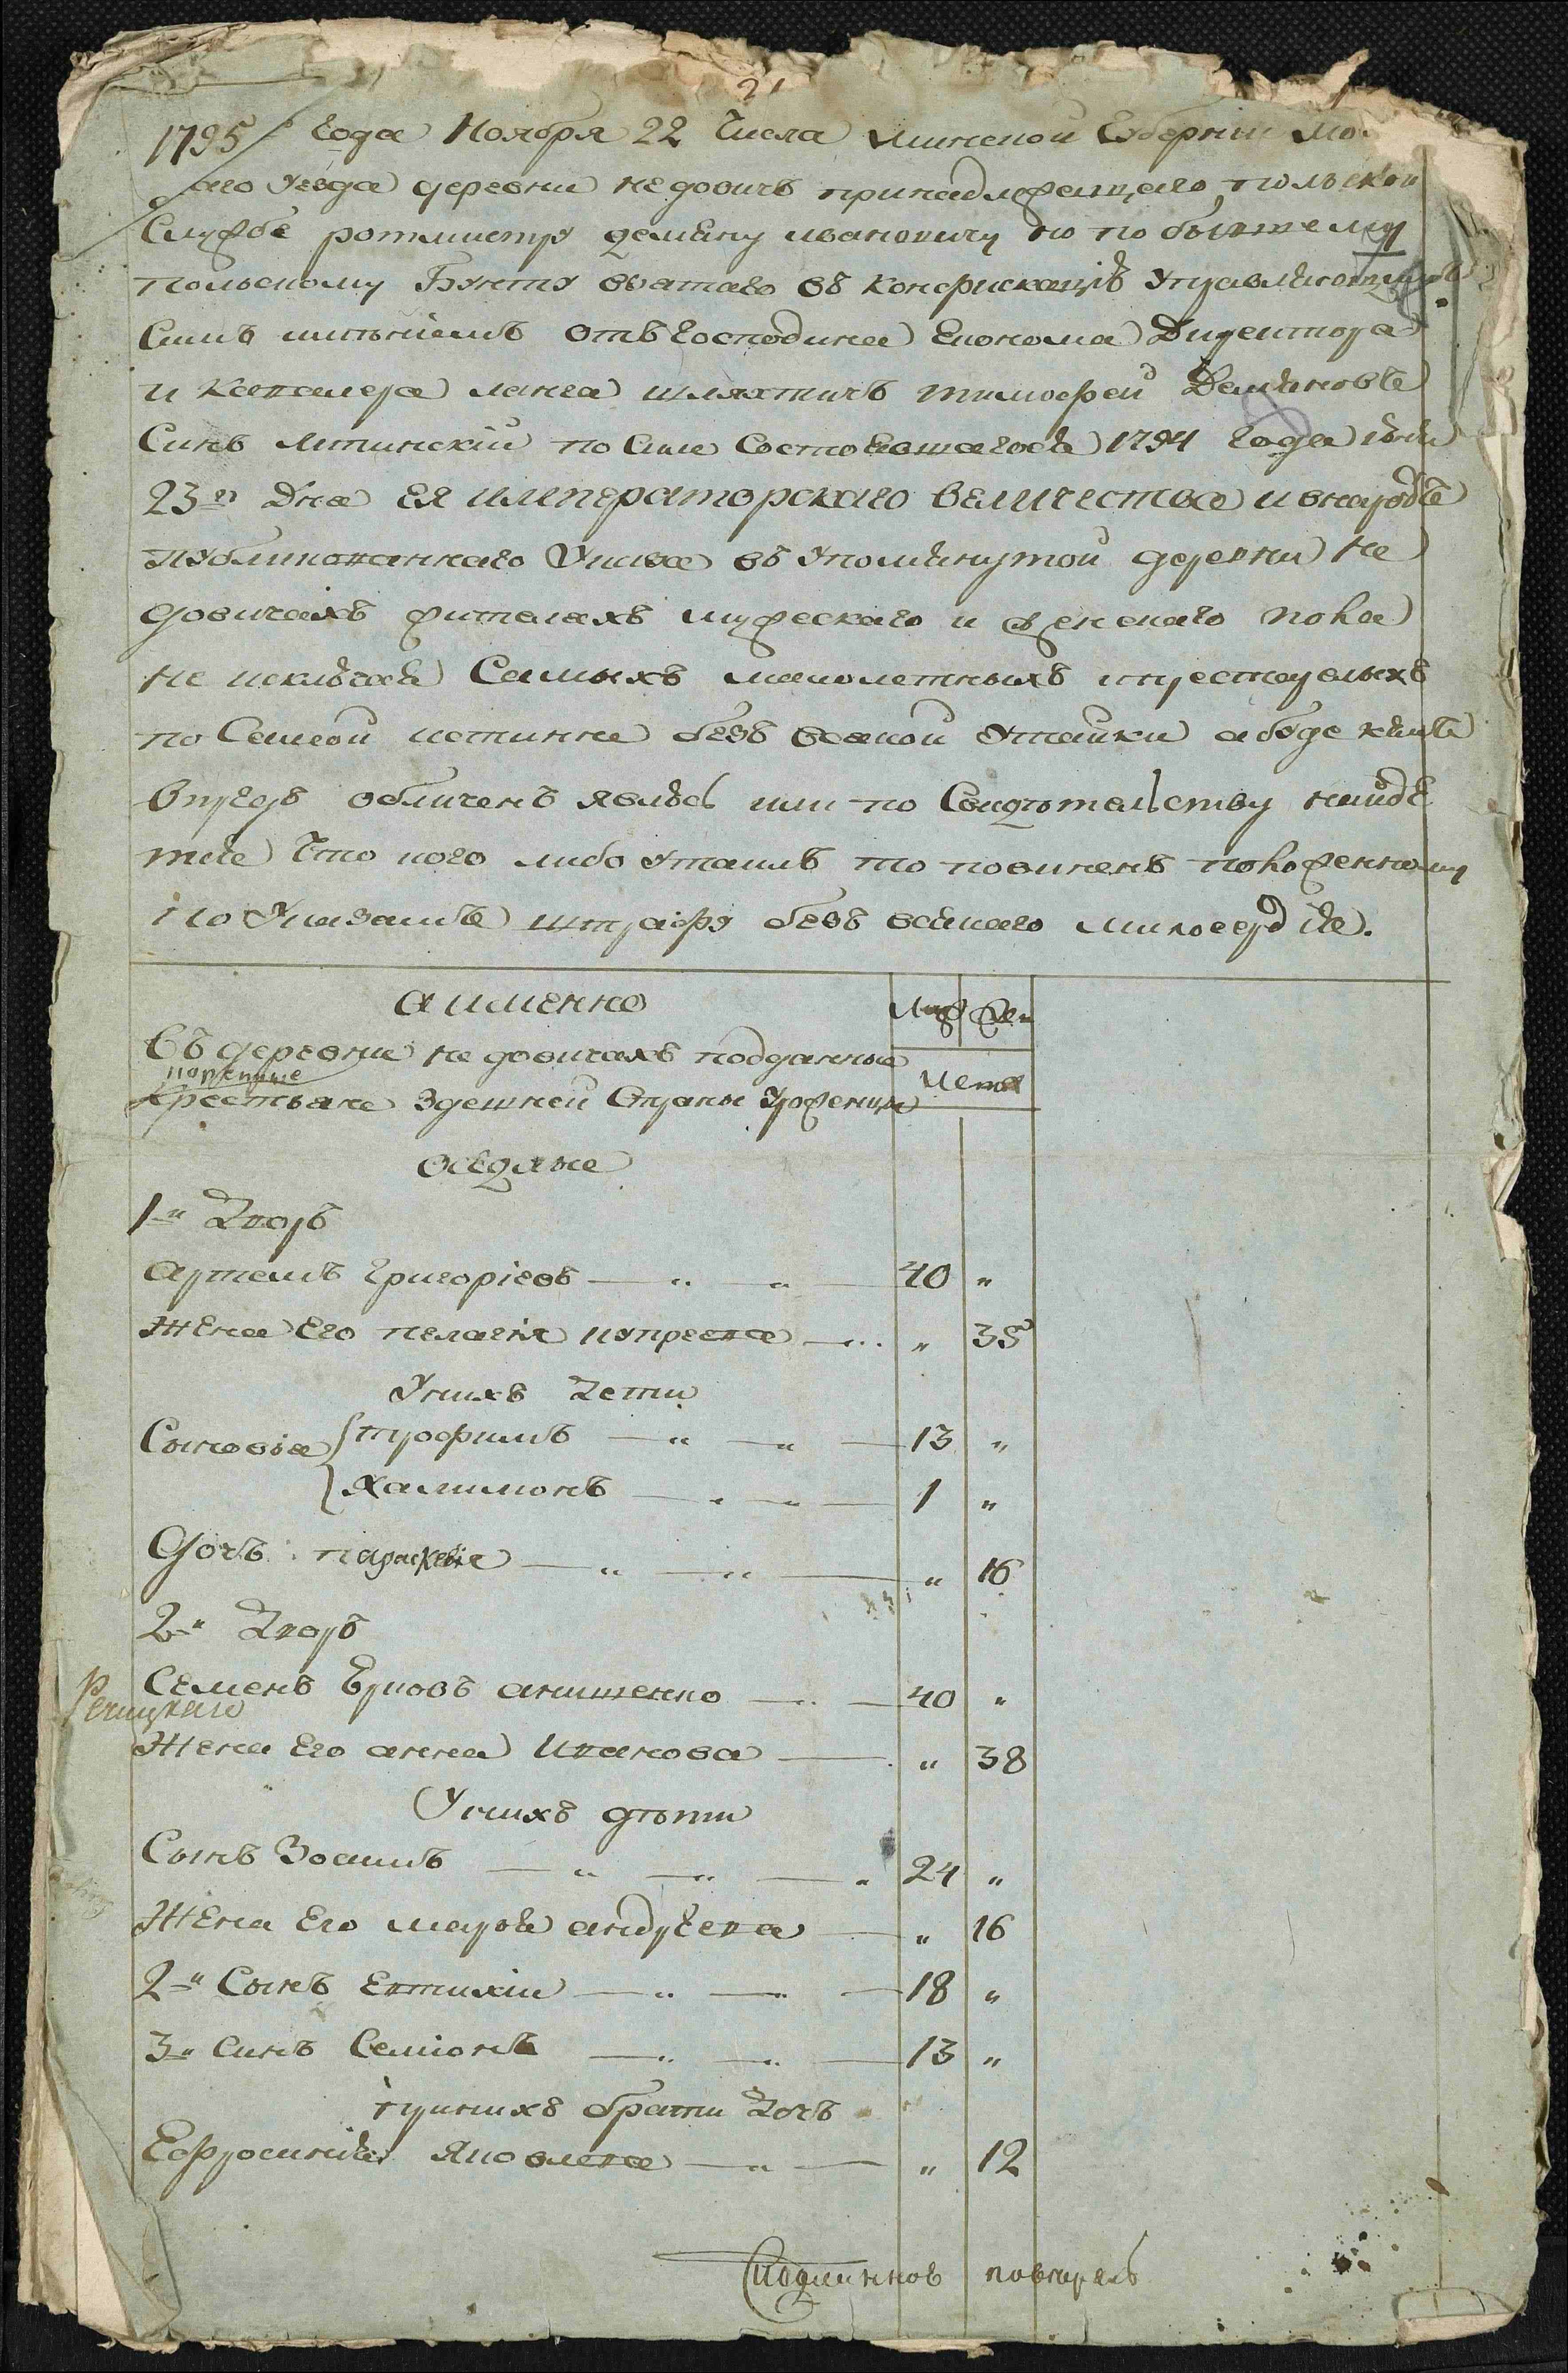 21
1795 года Ноября 22 числа минской Губернии
аго уезда деревни недовичъ принадлежащаго польской
службе ротмистру демяну ивановичу но по бывшему
польскому Бунту взятаго въ конфискацїю управляющимъ
симъ имениемъ отъ Господина Економа Директора
и кавалера ланга шляхтичъ тимофей Демяновъ
Синъ Литинский по силе состоявшагося 1794 года июня
23го дня ЕЯ императорскаго величества и внародъ
публикованнаго указа въ упомянутой деревни не
довичахъ жителахъ мужескаго и женскаго пола
не исключая самыхъ малолетныхъ и престарелыхъ
по самой истинне безъ всякой утайки а буде кемъ
впредь обличенъ явлюсь или по свидѣтельству найде
тся что кого либо утаилъ то повиненъ положенному
по указамъ штрафу безъ всякаго милосердия.
а именно
Муж Жен
Въ деревни недовичахъ подданные
лета
крестьяне здешней страны уроженцы
оседлые
1й Дворъ
Артемъ григорїевъ — " — " — 40 "
Жена Его пелагия — " 35
У нихъ дети
Сыновья { трофимъ — " — " — 13 "
{ халимонъ — " — " — 1 "
Дочь параскевия — " — " — " 16
2й Дворъ
Семенъ анищенко — " — 40 "
Речицкаго
Жена Его анна иванова — " 38
У нихъ дѣти
Сынъ Зосимъ — " — " — " 24 "
Жена Его марья андреева — " 16
2й Сынъ Евтихїи — " — " — 18 "
3й Синъ Семионъ — " — " — 13 "
при нихъ брата дочь
Ефросиния Яковлева — " — " 12